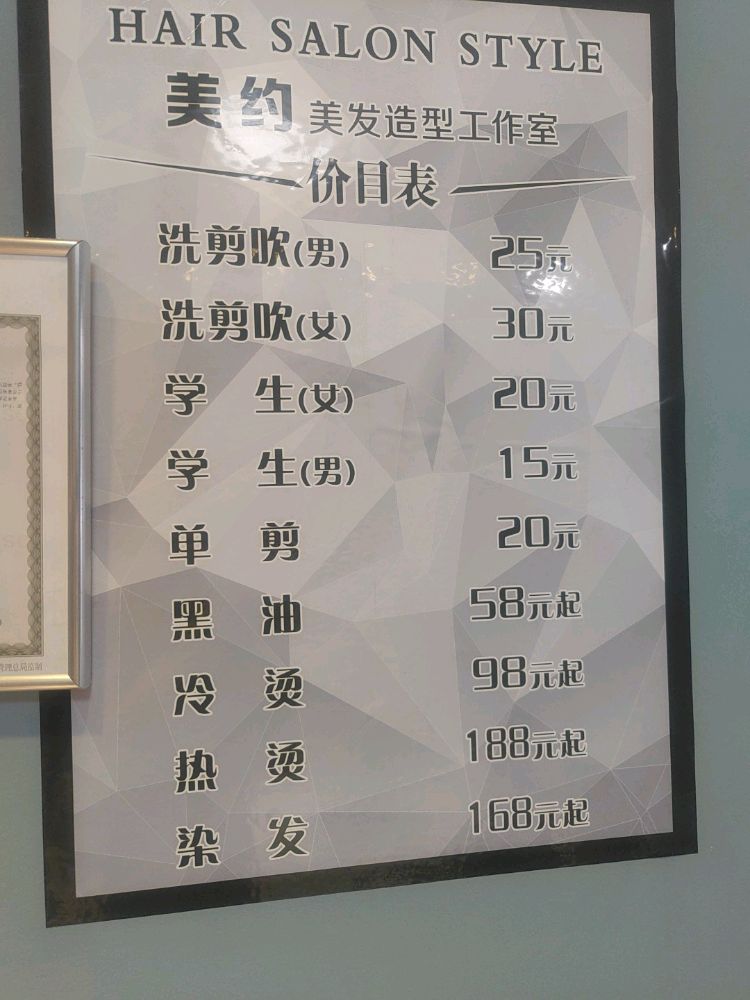 HAIR SALON STYLE
美约 美发造型工作室
价目表
洗剪吹(男) 25元
洗剪吹(女) 30元
学 生(女) 20元
学 生(男) 15元
单 剪 20元
黑 油 58元起
冷 烫 98元起
热 烫 188元起
染 发 168元起
管理总局监制